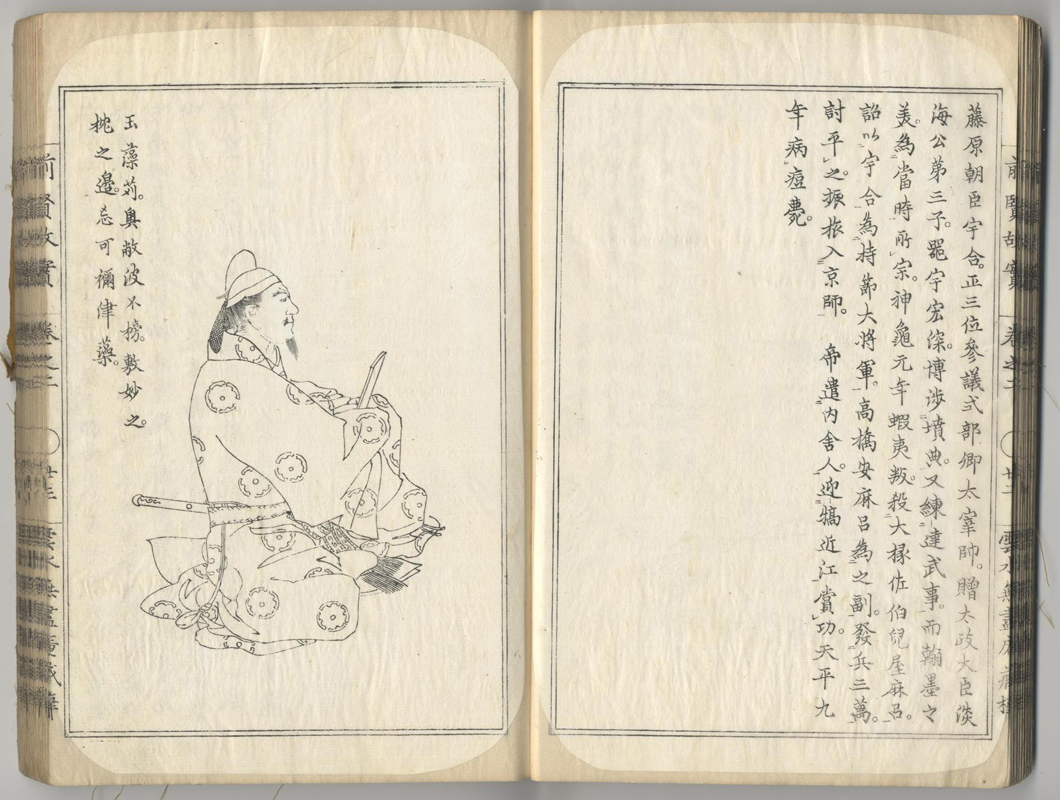 藤原朝臣宇合。正三位參議式部卿太宰帥。贈太政大臣淡
海公第三子。器宇宏深。博渉墳典。又練達武事。而翰墨之
美。為當時所宗。神龜元年蝦夷叛。殺大掾佐伯兒屋麻呂。
詔以宇合為持節大將軍。高橋安麻呂為之副。發兵三萬。
討平之。振旅入京師。帝遣内舍人。迎犒近江賞功。天平九
年病痘薨。
玉藻苅。奥敝波不榜。敷妙之。
枕之邊。忘可禰津藻。
前賢故實 卷之二 廿二
前賢故實 卷之二 廿三